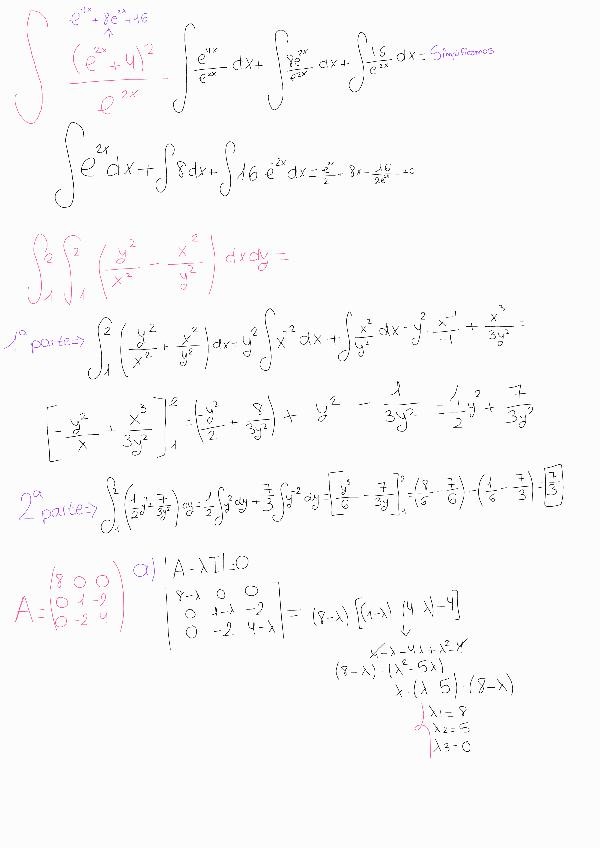 e^{4x} + 8e^{2x} + 16
∫ (e^{2x} + 4)^2 / e^{2x} = ∫ e^{4x}/e^{2x} dx + ∫ 8e^{2x}/e^{2x} dx + ∫ 16/e^{2x} dx = Simplificamos
∫ e^{2x} dx + ∫ 8 dx + ∫ 16 e^{-2x} dx = e^{2x}/2 + 8x - 16/2e^{2x} + c
∫_1^2 ∫_1^2 (y^2/x^2 - x^2/y^2) dx dy =
1ª parte ⇒ ∫_1^2 (y^2/x^2 + x^2/y^2) dx = y^2 ∫ x^{-2} dx + ∫ x^2/y^2 dx = y^2 · x^{-1}/-1 + x^3/3y^2 =
[-y^2/x + x^3/3y^2]_1^2 = (-y^2/2 + 8/3y^2) + y^2 - 1/3y^2 = 1/2 y^2 + 7/3y^2
2ª parte ⇒ ∫_1^2 (1/2 y^2 + 7/3y^2) dy = 1/2 ∫ y^2 dy + 7/3 ∫ y^{-2} dy = [y^3/6 - 7/3y]_1^2 = (8/6 - 7/6) - (1/6 - 7/3) = 7/3
A = (8 0 0 / 0 1 -2 / 0 -2 4) a) |A - λI| = 0
|8-λ 0 0 / 0 1-λ -2 / 0 -2 4-λ| = (8-λ) [(1-λ) (4-λ) - 4]
4 - λ - 4λ + λ^2 - 4
(8-λ) · (λ^2 - 5λ)
λ · (λ - 5) · (8-λ)
λ1 = 8
λ2 = 5
λ3 = 0